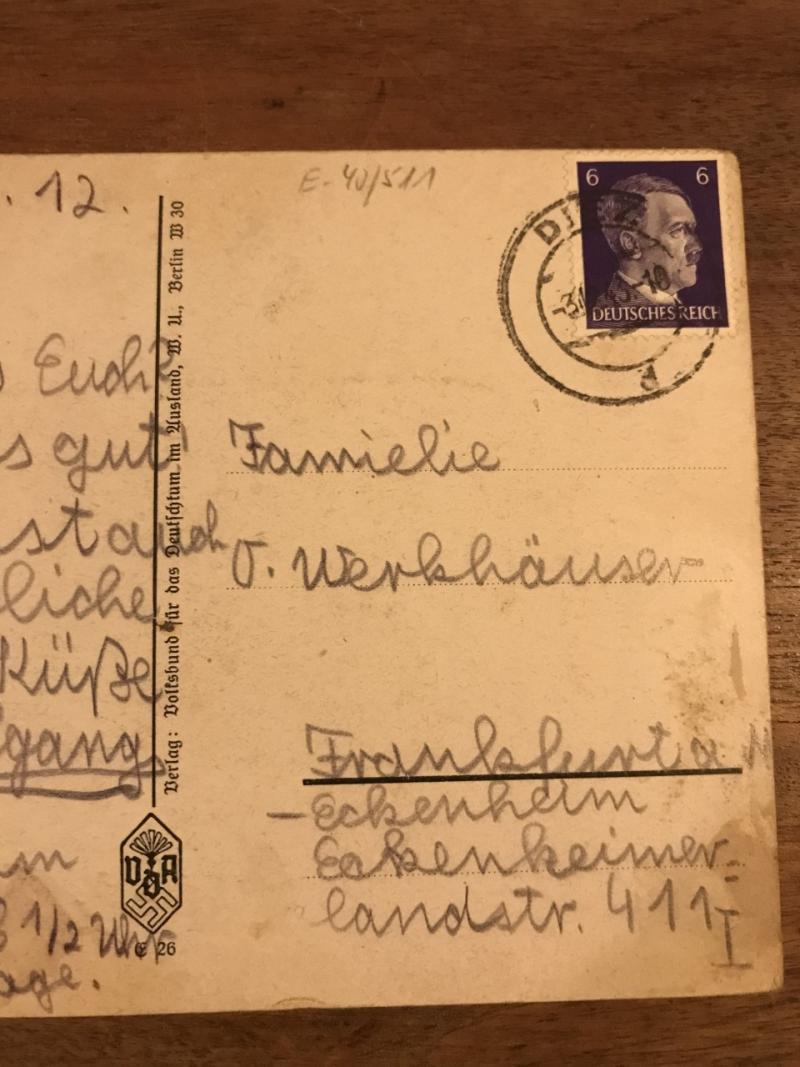 . 12.
E-40/511
6 6
DEUTSCHES REICH
Euch?
s gut!
stauch
liche
Küße
gang
m
1/2 Uhr
age.
Verlag: Volksbund für das Deutschtum im Ausland, W. U., Berlin W 30
VDA
E 26
Familie
O. Werkhäuser
Frankfurt a M
-Eckenheim
Eckenheimer-
landstr. 411 I